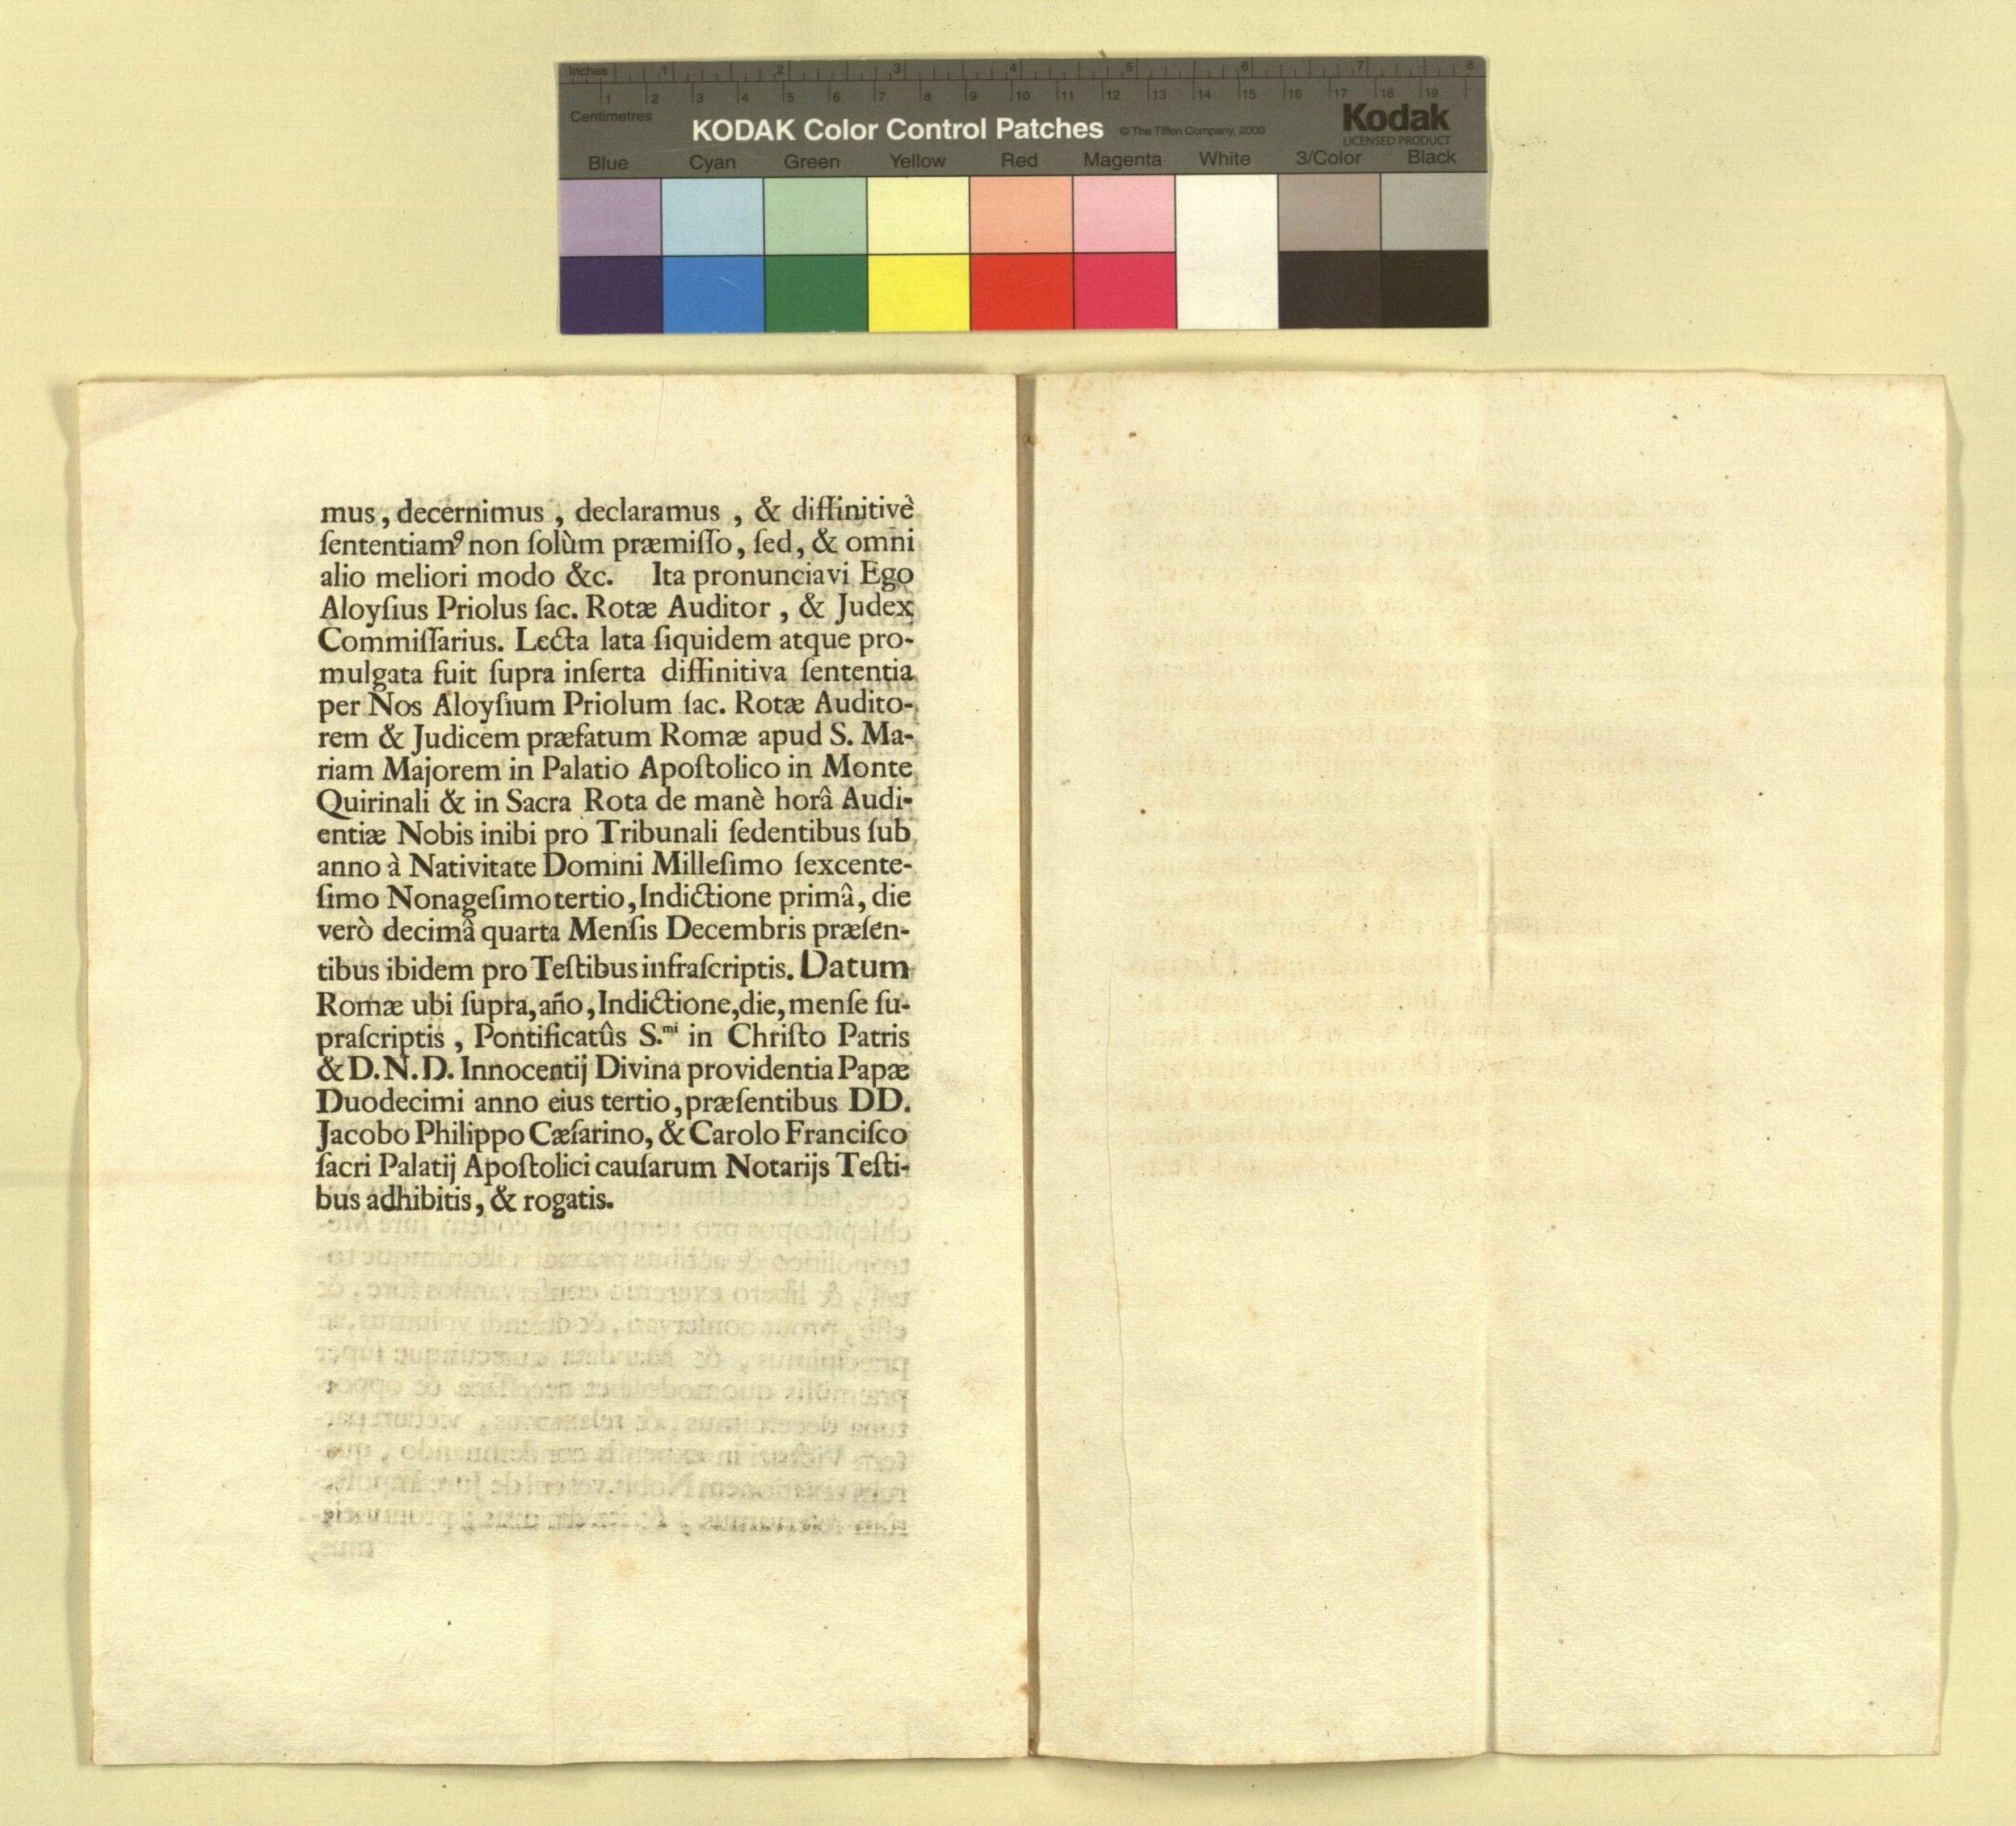 Inches 1 2 3 4 5 6 7 8
1 2 3 4 5 6 7 8 9 10 11 12 13 14 15 16 17 18 19
Centimetres
KODAK Color Control Patches © The Tiffen Company, 2000 Kodak
LICENSED PRODUCT
Blue Cyan Green Yellow Red Magenta White 3/Color Black
mus, decernimus, declaramus, & diffinitivè
ſententiamꝰ non ſolùm præmiſſo, ſed, & omni
alio meliori modo &c. Ita pronunciavi Ego
Aloyſius Priolus ſac. Rotæ Auditor, & Judex
Commiſſarius. Lecta lata ſiquidem atque pro-
mulgata fuit ſupra inſerta diffinitiva ſententia
per Nos Aloyſium Priolum ſac. Rotæ Audito-
rem & Judicem præfatum Romæ apud S. Ma-
riam Majorem in Palatio Apoſtolico in Monte
Quirinali & in Sacra Rota de manè horâ Audi-
entiæ Nobis inibi pro Tribunali ſedentibus ſub
anno à Nativitate Domini Milleſimo ſexcente-
ſimo Nonageſimotertio, Indictione primâ, die
verò decimâ quarta Menſis Decembris præſen-
tibus ibidem pro Teſtibus infraſcriptis. Datum
Romæ ubi ſupra, año, Indictione, die, menſe ſu-
praſcriptis, Pontificatûs S.ᵐⁱ in Chriſto Patris
& D. N. D. Innocentij Divina providentia Papæ
Duodecimi anno eius tertio, præſentibus DD.
Jacobo Philippo Cæſarino, & Carolo Franciſco
ſacri Palatij Apoſtolici cauſarum Notarijs Teſti-
bus adhibitis, & rogatis.